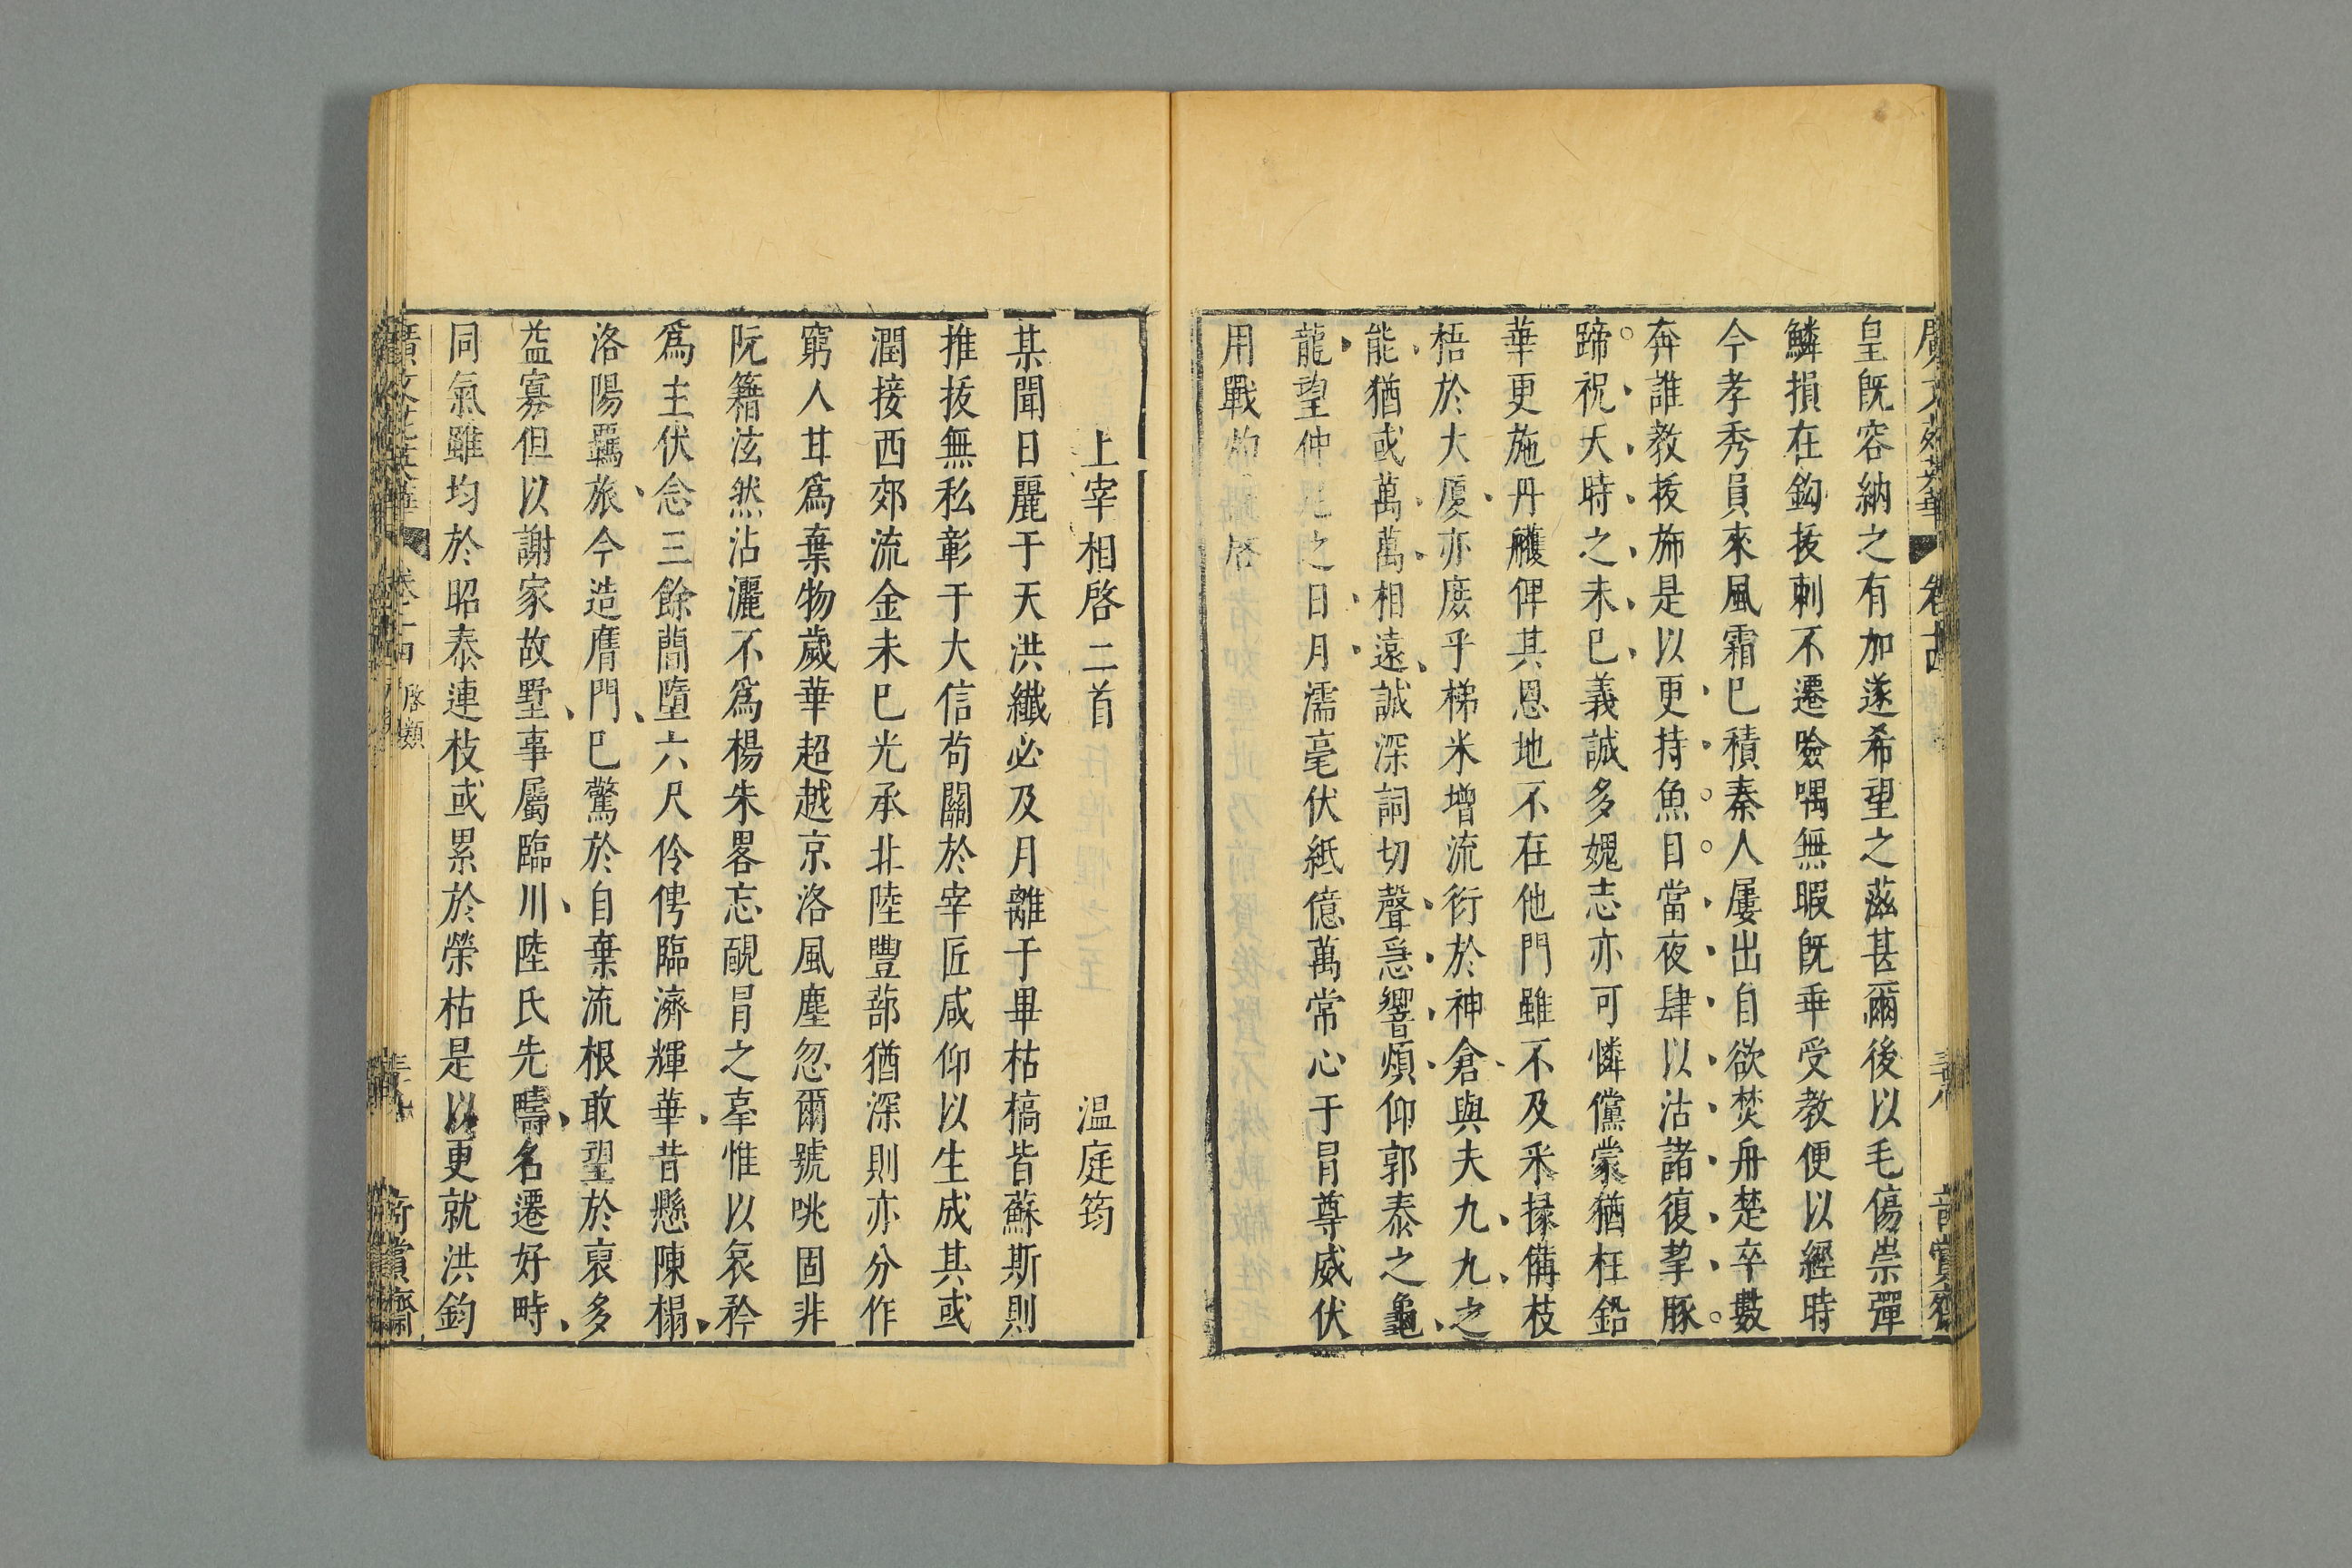 皇旣容納之有加遂希望之茲甚爾後以毛傷崇彈
鱗損在鈎拔刺不遷噞喁無暇旣垂受教便以經時
今孝秀員來風霜巳積秦人屢出自欲焚舟楚卒數
奔誰教拔斾是以更持魚目當夜肆以沽諸復挈豚
蹄祝天時之未巳義誠多媿志亦可憐儻蒙猶枉鉛
華更施丹雘俾其恩地不在他門雖不及釆掾備枝
梧於大廈亦庶乎梯米增流衍於神倉與夫九九之
能猶或萬萬相遠誠深詞切聲急響煩仰郭泰之龜
龍望仲尼之日月濡毫伏紙億萬常心于冒尊威伏
用戰灼 啓
上宰相啓二首 温庭筠
某聞日麗于天洪纖必及月離于畢枯槁皆蘇斯則
推拔無私彰于大信茍關於宰匠咸仰以生成其或
潤接西郊流金未巳光承北陸豐蔀猶深則亦分作
窮人甘爲棄物歲華超越京洛風塵忽爾號咷固非
阮籍泫然沾灑不爲楊朱畧忘靦冒之辜惟以哀矜
爲主伏念三餘簡墮六尺伶俜臨濟輝華昔懸陳榻
洛陽羇旅今造膺門巳驚於自棄流根敢望於裒多
益寡但以謝家故墅事屬臨川陸氏先疇名遷好畤
同氣雖均於昭泰連枝或累於榮枯是以更就洪鈞
廣文苑英華 卷二十四 啓類